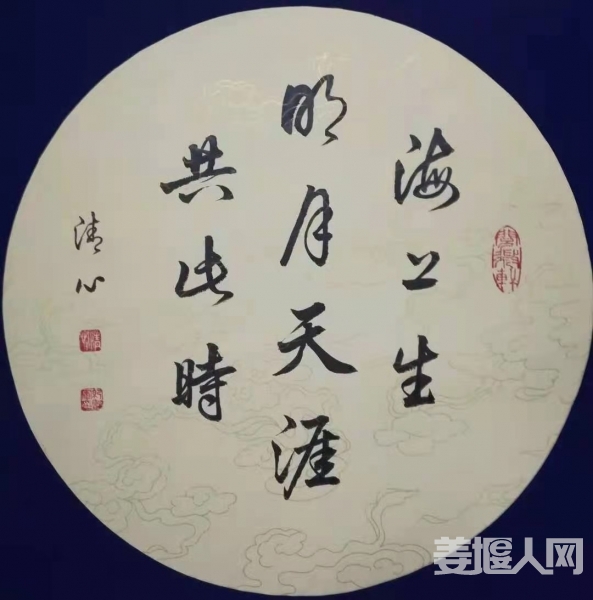 海上生
明月天涯
共此時
清心
姜堰人网